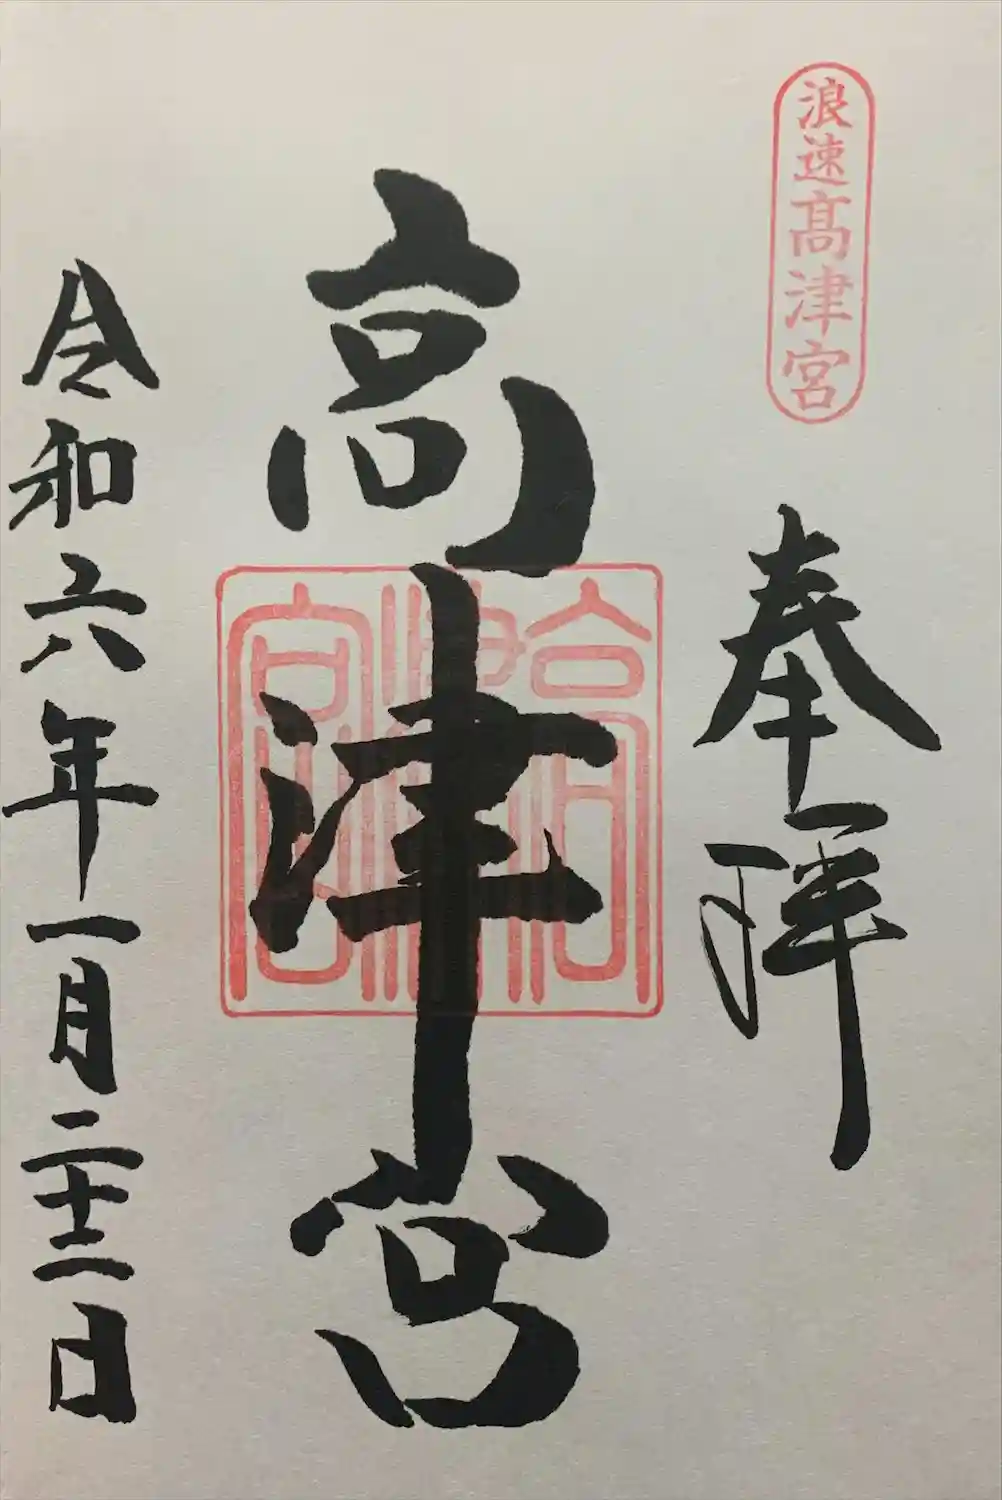 浪速髙津宮
奉拝
高津宮
高津宮
令和六年一月二十二日